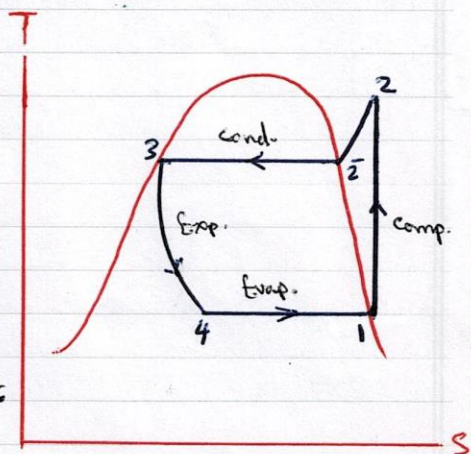 T
2
3
cond.
2̄
Exp.
comp.
Evap.
4
1
S